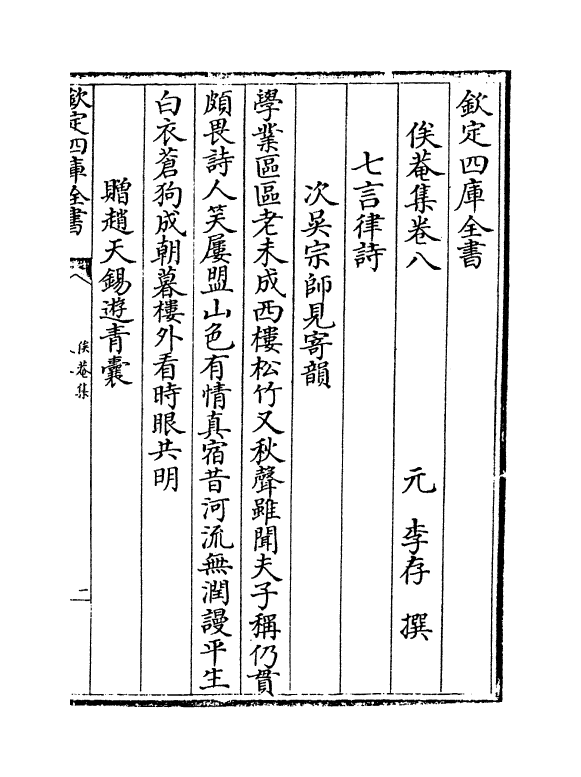 欽定四庫全書
俟菴集卷八
元 李存 撰
七言律詩
次吳宗師見寄韻
學業區區老未成西樓松竹又秋聲雖聞夫子稱仍貫
頗畏詩人笑屢盟山色有情真宿昔河流無潤謾平生
白衣蒼狗成朝暮樓外看時眼共明
贈趙天錫遊青囊
欽定四庫全書
俟菴集